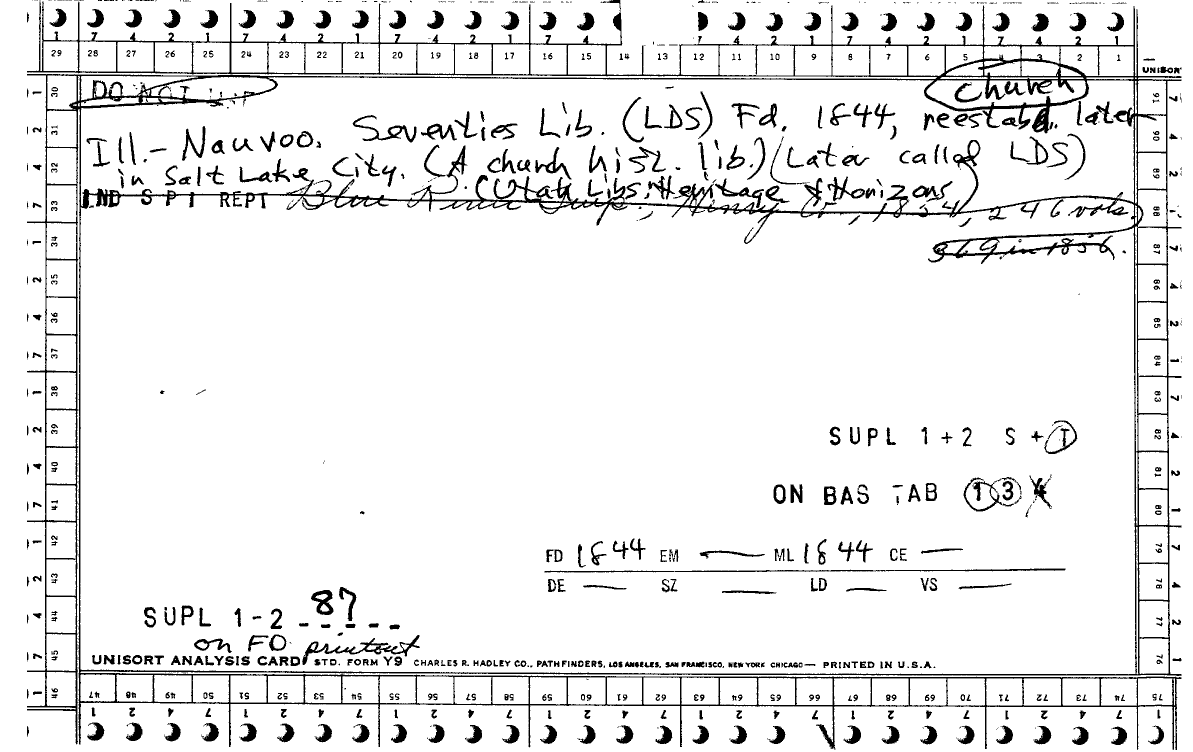 1 7 4 2 1 7 4 2 1 7 4 2 1 7 4 2 1 7 4 2 1 7 4 2 1
29 28 27 26 25 24 23 22 21 20 19 18 17 16 15 14 13 12 11 10 9 8 7 6 5 4 3 2 1
UNISORT
DO NOT
church
Ill.- Nauvoo. Seventies Lib. (LDS) Fd. 1844, reestabd. later
in Salt Lake City. (A church hist. lib.) (Later called LDS)
(Utah Libs. Heritage & Horizons)
IND S P I REPT Blue River Twp., Henry Co., 1854, 246 vols.
369 in 1856.
SUPL 1+2 S + T
ON BAS TAB 1 3 4
FD 1844 EM — ML 1844 CE —
DE — SZ — LD — VS —
SUPL 1-2 87
on FD printout
UNISORT ANALYSIS CARD STD. FORM Y9 CHARLES R. HADLEY CO., PATHFINDERS, LOS ANGELES, SAN FRANCISCO, NEW YORK CHICAGO — PRINTED IN U.S.A.
30 31 32 33 34 35 36 37 38 39 40 41 42 43 44 45 46
91 90 89 88 87 86 85 84 83 82 81 80 79 78 77 76
47 48 49 50 51 52 53 54 55 56 57 58 59 60 61 62 63 64 65 66 67 68 69 70 71 72 73 74 75